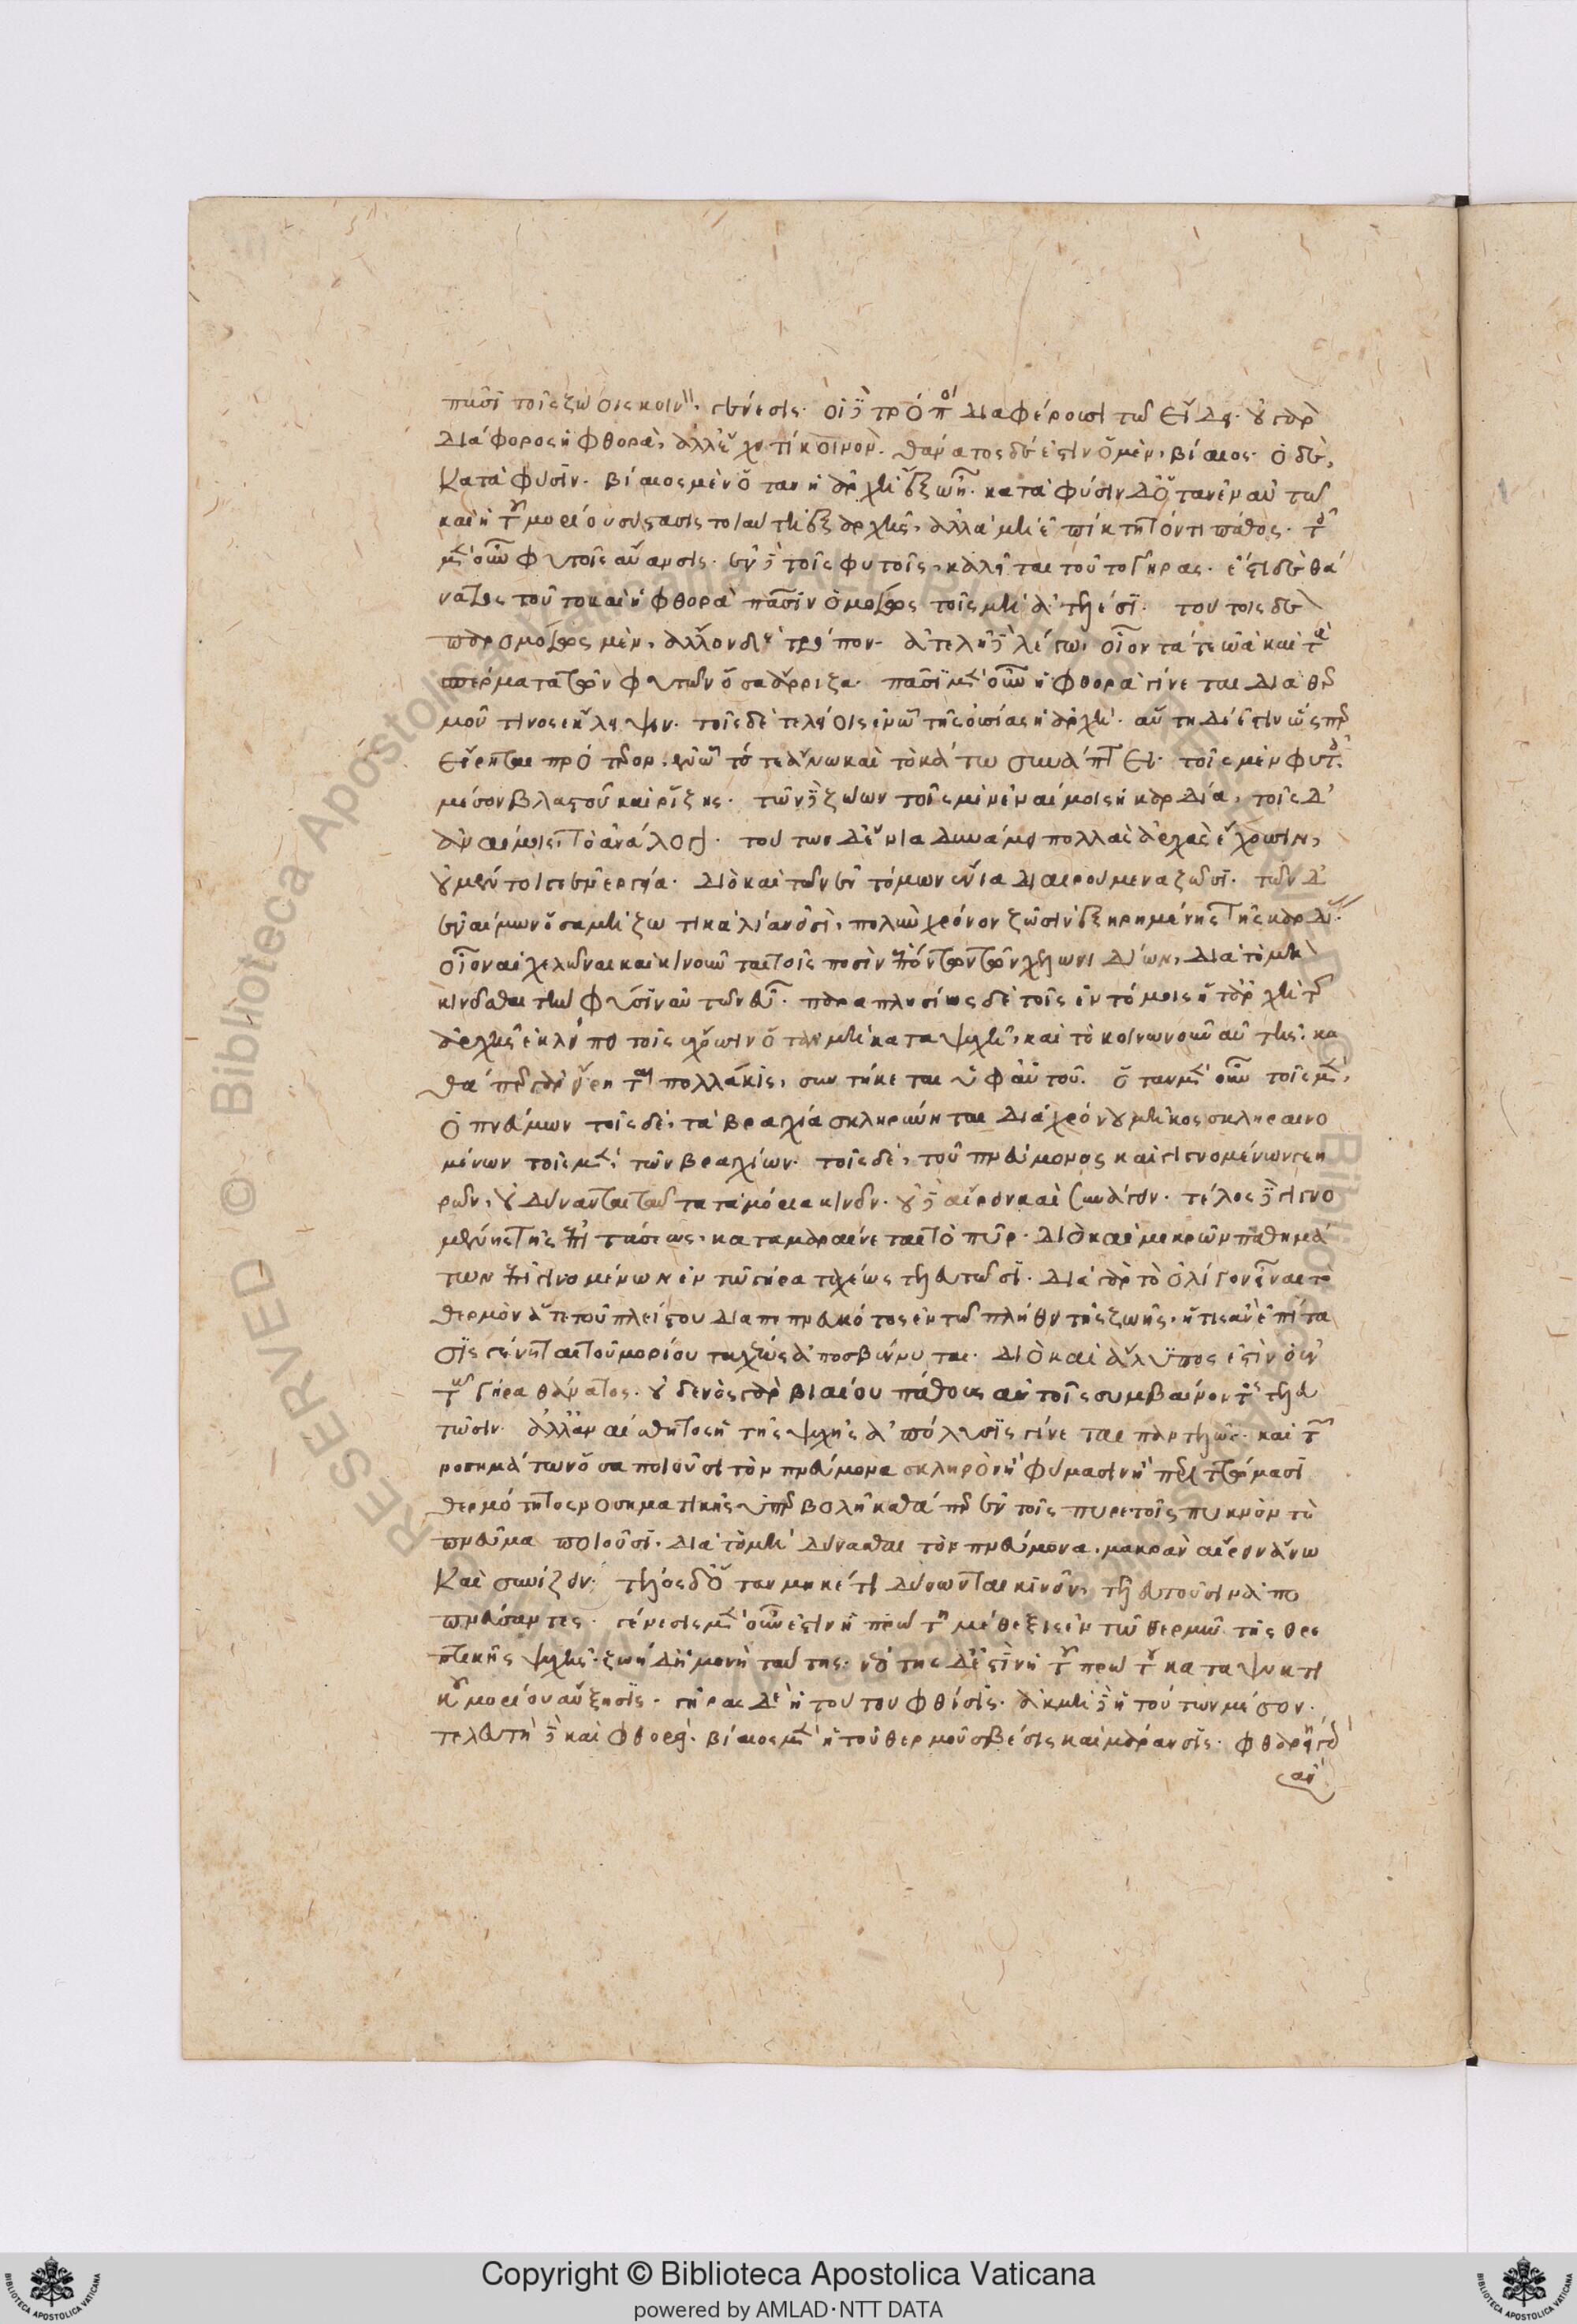 πᾶσι τοῖς ζώοις κοινὴ γένεσις. οἱ δὲ τρόποι διαφέρουσι τῷ εἴδει. οὐ γὰρ
διάφορος ἡ φθορὰ, ἀλλ' ἔχει τι κοινὸν. θάνατος δέ ἐστιν ὁ μὲν, βίαιος. ὁ δὲ,
κατὰ φύσιν. βίαιος μὲν ὅταν ἡ ἀρχὴ ἔξωθεν. κατὰ φύσιν δ' ὅταν ἐν αὐτῷ
καὶ ἡ τοῦ μορίου σύστασις τοιαύτη ἐξ ἀρχῆς, ἀλλὰ μὴ ἐπίκτητόν τι πάθος. τοῖς
μὲν οὖν φυτοῖς αὔανσις. ἐν δὲ τοῖς φυτοῖς, καλεῖται τοῦτο γῆρας. ἔστι δὲ θά
νατος τοῦτο καὶ ἡ φθορὰ πᾶσιν ὁμοίως τοῖς μὴ ἀτελέσι. τούτοις δὲ
παρομοίως μὲν, ἄλλον δὲ τρόπον. ἀτελῆ δὲ λέγω, οἷον τά τε ὠὰ καὶ τὰ
σπέρματα τῶν φυτῶν ὅσα ἄρριζα. πᾶσι μὲν οὖν ἡ φθορὰ γίνεται διὰ θερ
μοῦ τινος ἔκλειψιν. τοῖς δὲ τελείοις ἐν ᾧ τῆς οὐσίας ἡ ἀρχή. αὕτη δέ ἐστιν ὥσπερ
εἴρηται πρότερον, ἐν ᾧ τό τε ἄνω καὶ τὸ κάτω συνάπτει. τοῖς μὲν φυτοῖς
μέσον βλαστοῦ καὶ ῥίζης. τῶν δὲ ζώων τοῖς μὲν ἐναίμοις ἡ καρδία, τοῖς δ'
ἀναίμοις, τὸ ἀνάλογον. τούτων δ' ἔνια δυνάμει πολλὰς ἀρχὰς ἔχουσιν,
οὐ μέντοι γε ἐνεργείᾳ. διὸ καὶ τῶν ἐντόμων ἔνια διαιρούμενα ζῶσι. τῶν δ'
ἐναίμων ὅσα μὴ ζωτικὰ λίαν εἰσὶ, πολὺν χρόνον ζῶσιν ἐξῃρημένης τῆς καρδίας.
οἷον αἱ χελῶναι καὶ κινοῦνται τοῖς ποσὶν ἐπόντων τῶν χελωνίων, διὰ τὸ μὴ
κινεῖσθαι τὴν φύσιν αὐτῶν εὖ. παραπλησίως δὲ τοῖς ἐντόμοις ἡ
ἀρχῆς ἐκλείπει τοῖς ἔχουσιν ὅταν μὴ καταψυχῇ, καὶ τὸ κοινωνοῦν αὐτῆς. κα
θάπερ γὰρ εἴρηται πολλάκις, συντήκεται ὑφ' αὑτοῦ. ὅταν μὲν οὖν τοῖς μὲν,
ὁ πνεύμων τοῖς δὲ, τὰ βράγχια σκληρύνηται διὰ χρόνου μῆκος σκληραινο
μένων τοῖς μὲν, τῶν βραγχίων. τοῖς δὲ, τοῦ πνεύμονος καὶ γινομένων γεη
ρῶν, οὐ δύνανται ταῦτα τὰ μόρια κινεῖν. οὐδ' αἴρειν καὶ συνάγειν. τέλος δὲ γινο
μένης τῆς ἐπιτάσεως, καταμαραίνεται τὸ πῦρ. διὸ καὶ μικρῶν παθημά
των ἐπιγινομένων ἐν τῷ γήρᾳ ταχέως τελευτῶσι. διὰ γὰρ τὸ ὀλίγον εἶναι τὸ
θερμὸν ἅτε τοῦ πλείστου διαπεπνευκότος ἐν τῷ πλήθει τῆς ζωῆς, ἥτις ἂν ἐπίτα
σις γένηται τοῦ μορίου ταχέως ἀποσβέννυται. διὸ καὶ ἄλυπός ἐστιν ὁ ἐν
τῷ γήρᾳ θάνατος. οὐδενὸς γὰρ βιαίου πάθους αὐτοῖς συμβαίνοντος τελευ
τῶσιν. ἀλλ' ἀναίσθητος ἡ τῆς ψυχῆς ἀπόλυσις γίνεται παντελῶς. καὶ τῶν
νοσημάτων ὅσα ποιοῦσι τὸν πνεύμονα σκληρὸν ἢ φύμασιν ἢ περιττώμασι
θερμότητος νοσηματικῆς ὑπερβολῇ καθάπερ ἐν τοῖς πυρετοῖς πυκνὸν τὸ
πνεῦμα ποιοῦσι, διὰ τὸ μὴ δύνασθαι τὸν πνεύμονα, μακρὰν αἴρειν ἄνω
καὶ συνίζειν. τέλος δ' ὅταν μηκέτι δύνωνται κινεῖν, τελευτῶσιν ἀπο
πνεύσαντες. γένεσις μὲν οὖν ἐστιν ἡ πρώτη μέθεξις ἐν τῷ θερμῷ τῆς θρε
πτικῆς ψυχῆς. ζωὴ δ' ἡ μονὴ ταύτης. νεότης δ' ἐστὶν ἡ τοῦ πρώτου καταψυκτι
κοῦ μορίου αὔξησις. γῆρας δὲ ἡ τούτου φθίσις. ἀκμὴ δὲ ἡ τούτων μέσον.
τελευτὴ δὲ καὶ φθορὰ. βίαιος μὲν ἡ τοῦ θερμοῦ σβέσις καὶ μάρανσις. φθαρείη γὰρ
ἂν
Copyright © Biblioteca Apostolica Vaticana
powered by AMLAD·NTT DATA